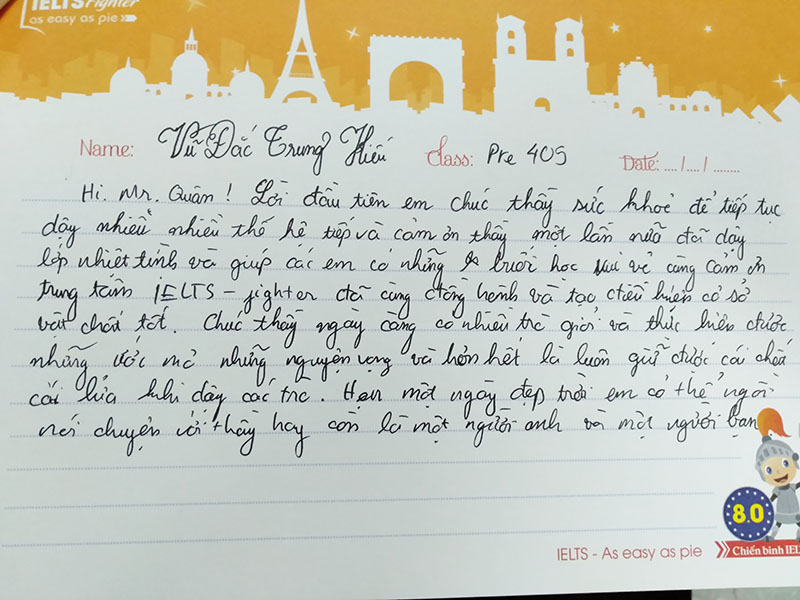 IELTS Fighter
as easy as pie
Name: Vũ Đắc Trung Hiếu Class: Pre 409 Date: .../.../......
Hi. Mr. Quân! Lời đầu tiên em chúc thầy sức khoẻ để tiếp tục
dậy nhiều nhiều thế hệ tiếp và cảm ơn thầy một lần nữa đã dạy
lớp nhiệt tình và giúp các em có những buổi học vui vẻ cùng cảm ơn
trung tâm IELTS - fighter đã cùng đồng hành và tạo điều kiện cở sở
vật chất tốt. Chúc thầy ngày càng có nhiều trò giỏi và thực hiện được
những ước mơ những nguyện vọng và hơn hết là luôn giữ được cái chất
cái lửa khi dậy các trò. Hẹn một ngày đẹp trời em có thể ngồi
nói chuyện với thầy hay còn là một người anh và một người bạn
8.0
IELTS - As easy as pie
Chiến binh IEL